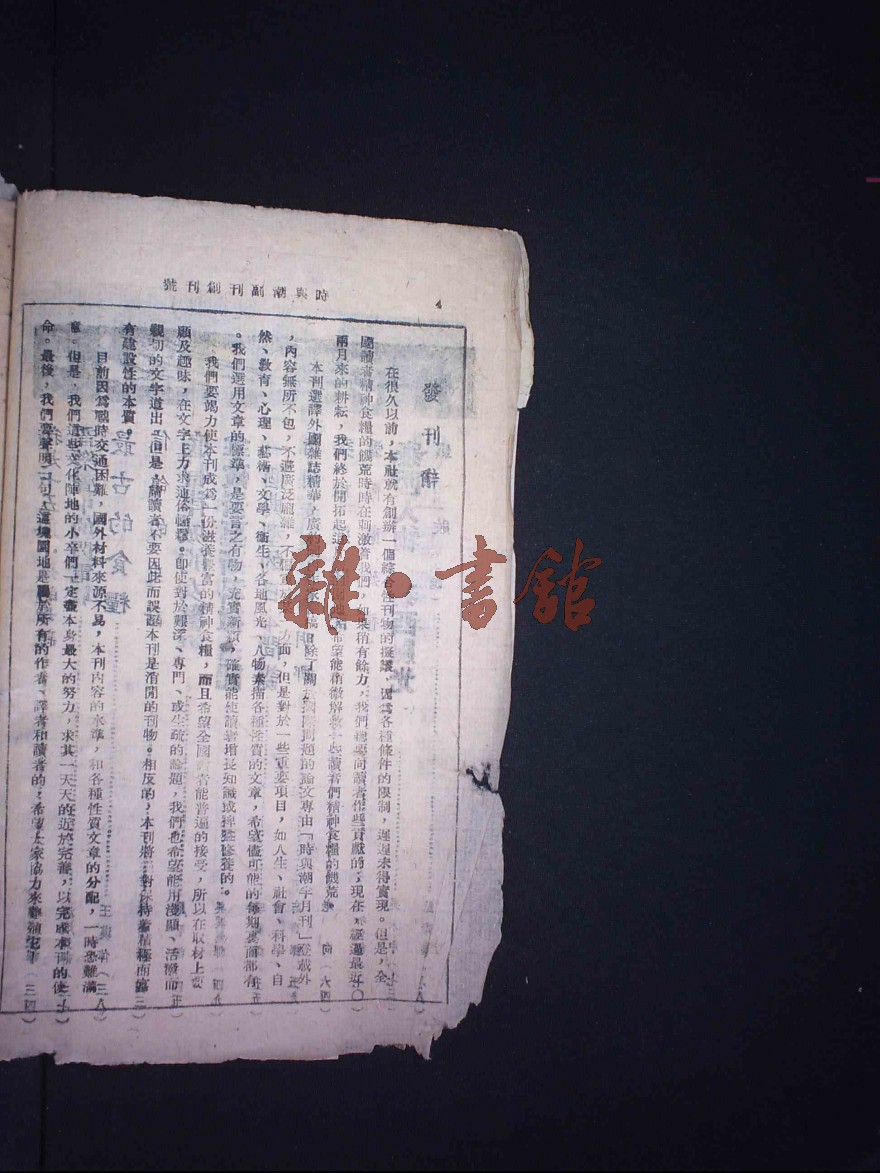 時與潮副刊創刊號
發刊辭
在很久以前，本社就有創辦一個綜合性刊物的擬議，因為各種條件的限制，遲遲未得實現。但是，全
國讀者精神食糧的饑荒時時在刺激着我們，如果稍有餘力，我們總要向讀者作些貢獻的；現在，經過最近
兩月來的耕耘，我們終於開拓起這 希望能稍微解救一些讀者們精神食糧的饑荒
本刊選譯外國雜誌精華，廣 稿 除了關於國際問題的論文專由「時與潮半月刊」登載外
，內容無所不包，不避廣泛龐雜，不 方面，但是對於一些重要項目，如人生、社會、科學、自
然、教育、心理、藝術、文學、衛生、各地風光、人物素描各種性質的文章，希望儘可能的每期裏面都有
。我們選用文章的標準，是要言之有物，充實新穎，確實能使讀者增長知識或裨益修養的。
我們要竭力使本刊成為一份滋養豐富的精神食糧，而且希望全國 者能普遍的接受，所以在取材上要
顧及趣味，在文字上力求通俗 。即使對於艱深、專門、或生疏的論題，我們也希望能用淺顯、活潑而
親切的文字道出。但是，請讀者不要因此而誤認本刊是消閒的刊物。相反的，本刊將 對保持着積極而富
有建設性的本質。
目前因為戰時交通困難，國外材料來源不易，本刊內容的水準，和各種性質文章的分配，一時恐難滿
意。但是，我們這些文化陣地的小卒們一定盡本身最大的努力，求其一天天的近於完善，以完成本刊的使
命。最後，我們要聲明一句，這塊園地是屬於所有的作者、譯者和讀者的，希望大家協力來
最古的食糧